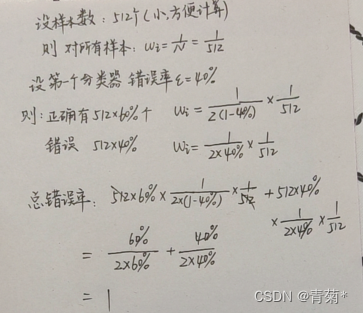 设样本数: 512个(小,方便计算)
则 对所有样本: wᵢ = 1/N = 1/512
设第一个分类器 错误率 ε = 40%
则: 正确有 512×60% 个 wᵢ = 1/2(1-40%) × 1/512
错误 512×40% wᵢ = 1/2×40% × 1/512
总错误率: 512×60% × 1/2×(1-40%) × 1/512 + 512×40%
× 1/2×40% × 1/512
= 60%/2×60% + 40%/2×40%
= 1
CSDN @青菊*